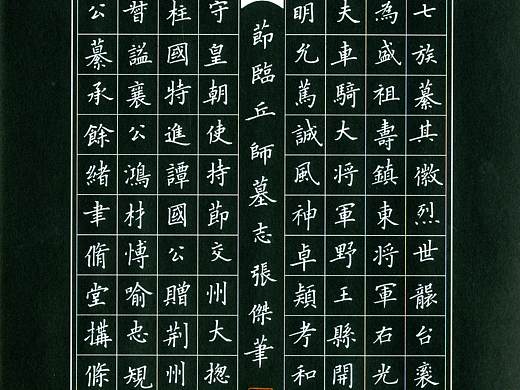 七族纂其徽烈世襲台衮
為盛祖壽鎮東將軍右光
夫車騎大將軍野王縣開
明允篤誠風神卓穎考和
莭臨丘師墓志張傑筆
守皇朝使持莭交州大揔
柱國特進譚國公贈荆州
督諡襄公鴻材愽喻忠規
公纂承餘緒聿脩堂搆條